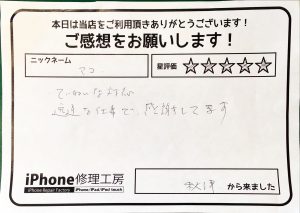 本日は当店をご利用頂きありがとうございます！
ご感想をお願いします！
ニックネーム
マコ
星評価
☆☆☆☆☆
ていねいな対応
迅速な仕事で、感謝してます
iPhone修理工房
iPhone Repair Factory
iPhone/iPad/iPod touch
秋津 から来ました